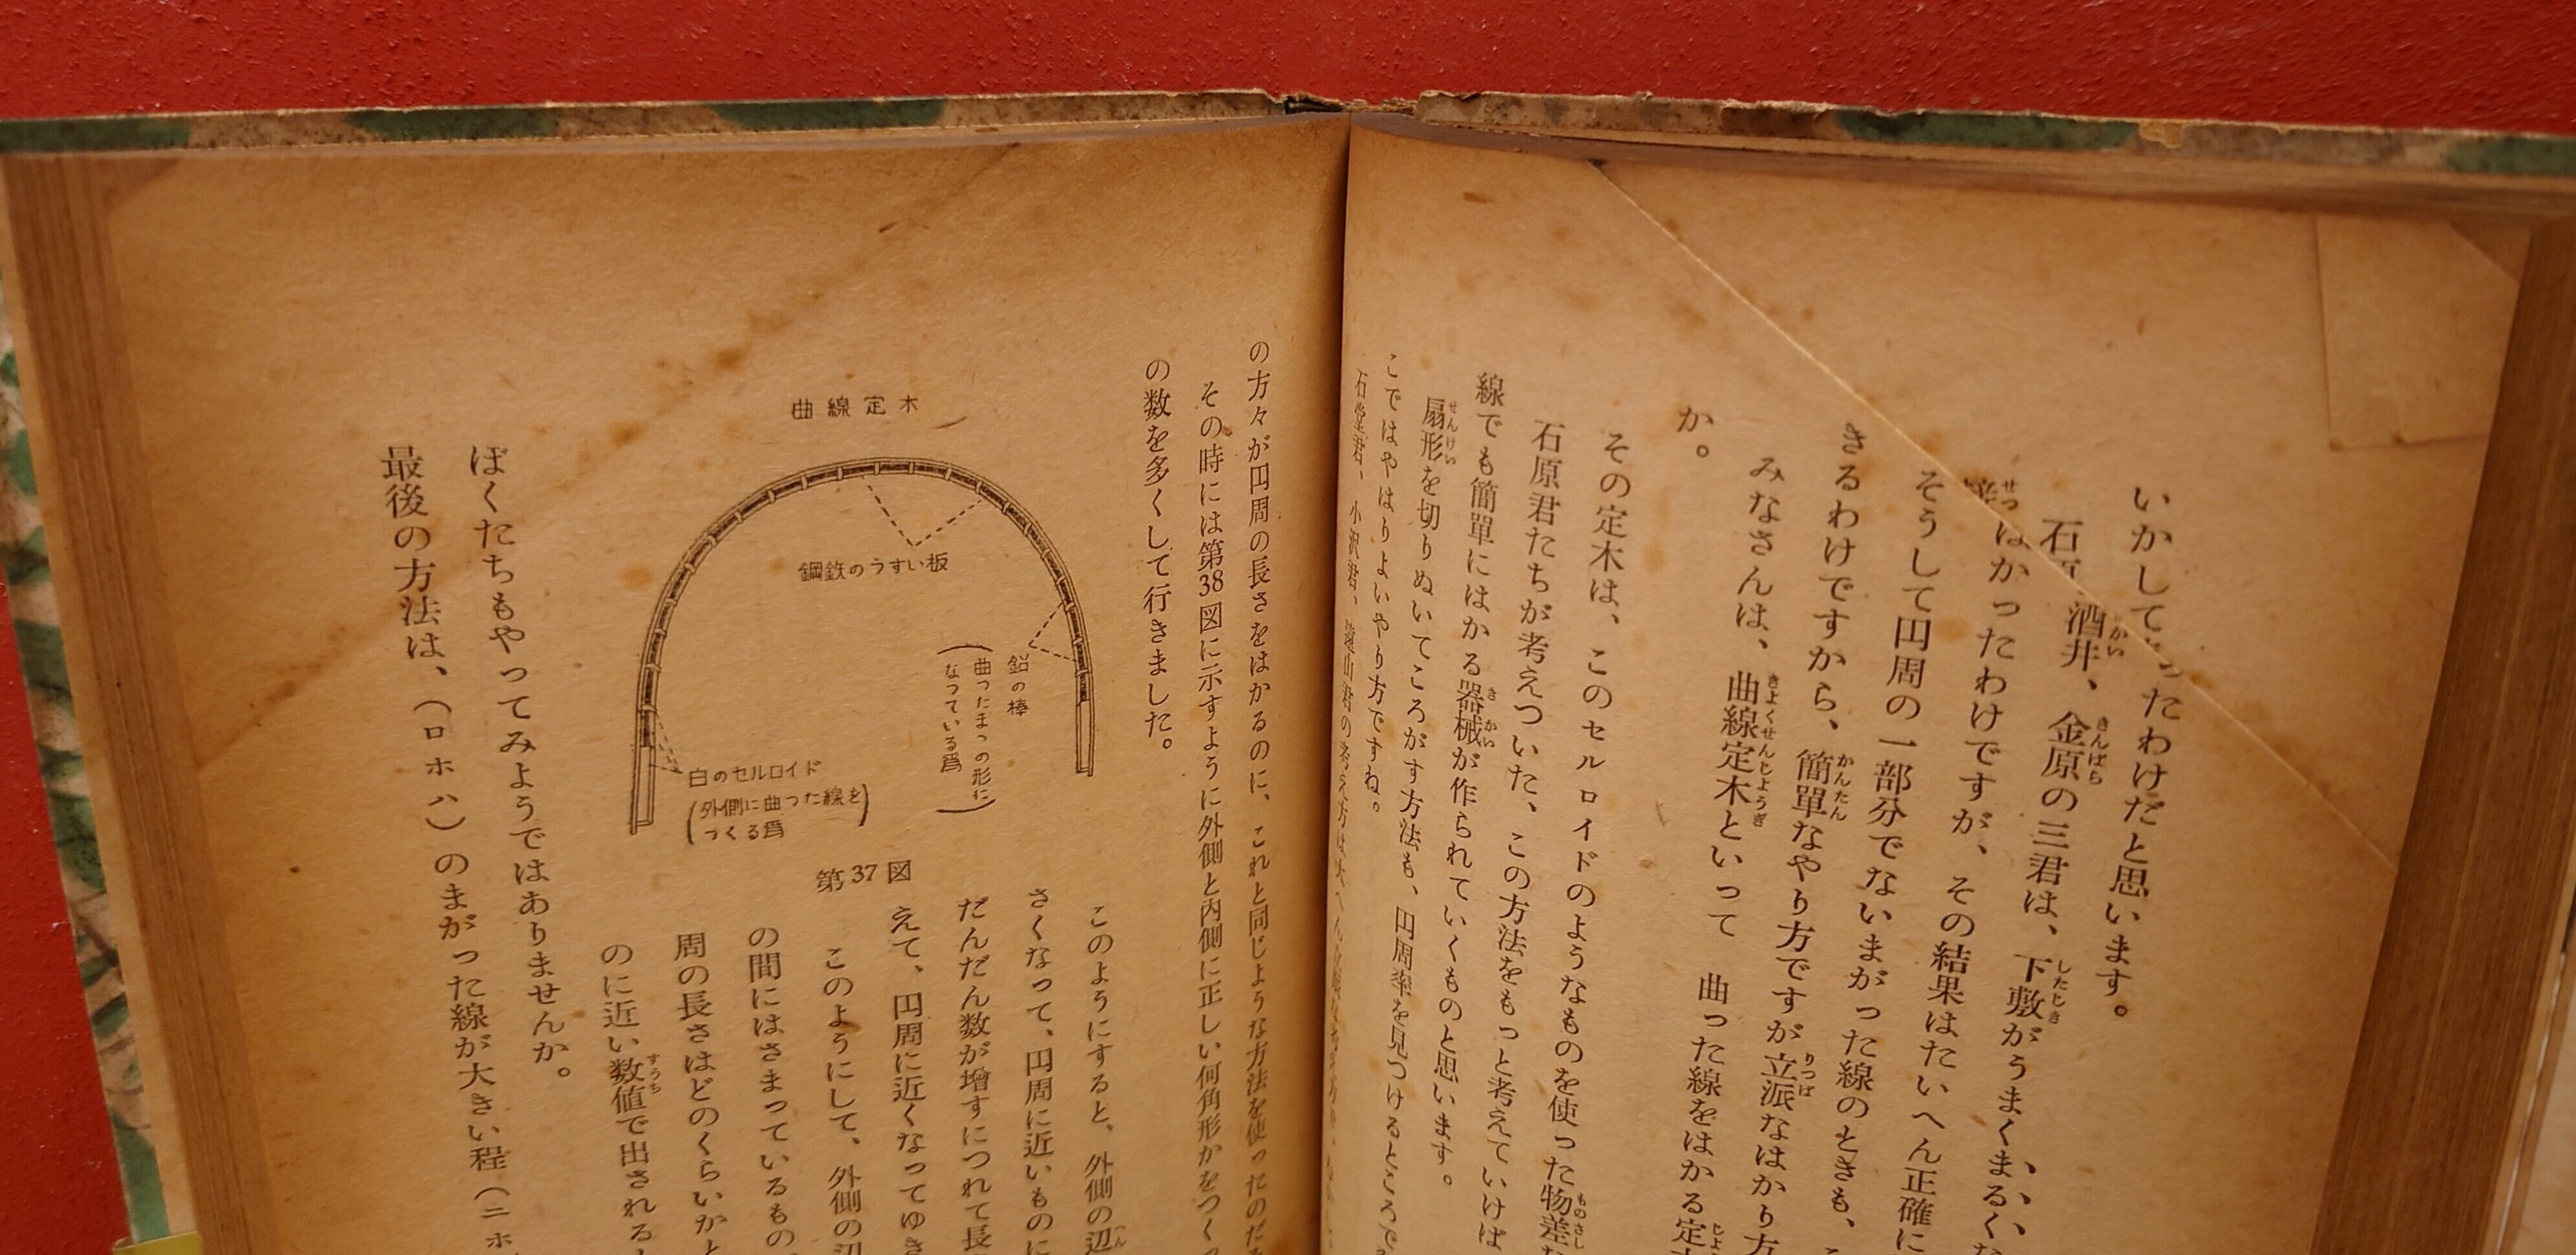 いかして
たわけだと思います。
酒井、金原の三君は、下敷がうまくまるくな
はかったわけですが、その結果はたいへん正確に
そうして円周の一部分でないまがった線のときも、
きるわけですから、簡單なやり方ですが立派なはかり方
みなさんは、曲線定木といって 曲った線をはかる定
か。
その定木は、このセルロイドのようなものを使った物差
石原君たちが考えついた、この方法をもっと考えていけば
線でも簡單にはかる器械が作られていくものと思います。
扇形を切りぬいてころがす方法も、円周率を見つけるところで
こではやはりよいやり方ですね。
石堂君、小沢君、遠山君の考え方は大へん
の方々が円周の長さをはかるのに、これと同じような方法を使ったのだ
その時には第38図に示すように外側と内側に正しい何角形かをつく
の数を多くして行きました。
このようにすると、外側の辺
さくなって、円周に近いものに
だんだん数が増すにつれて長
えて、円周に近くなってゆき
このようにして、外側の辺
の間にはさまっているもの
周の長さはどのくらいかと
のに近い数値で出される
曲線定木
鋼鉄のうすい板
鉛の棒
(曲ったまっの形に
なっている爲)
白のセルロイド
(外側に曲った線を
つくる爲)
第37図
ぼくたちもやってみようではありませんか。
最後の方法は、(ロホハ)のまがった線が大きい程(ニホ